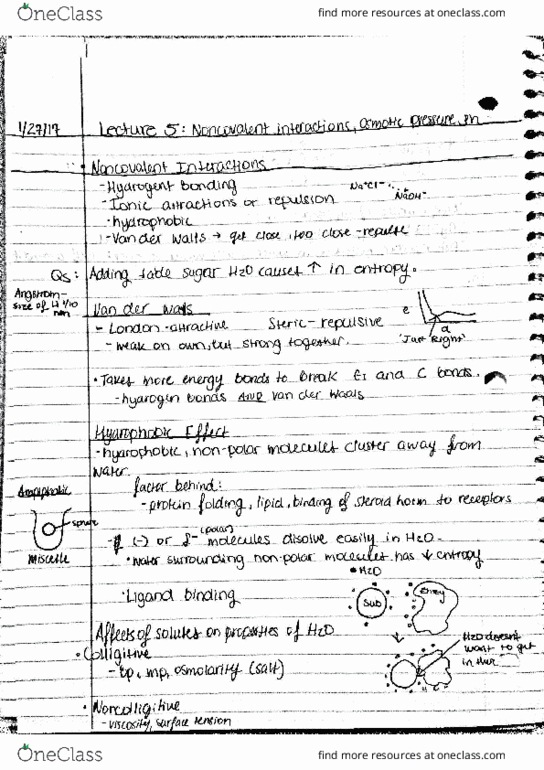 OneClass
find more resources at oneclass.com
1/27/17
Lecture 5: Noncovalent interactions, osmotic pressure, pH
• Noncovalent Interactions
- Hydrogent bonding
- Ionic attractions or repulsion
Na+Cl-
NaOH-
- hydrophobic
- Van der Walls → get close, too close - repulse
Qs: Adding table sugar H2O causes ↑ in entropy.
Angstrom -
size of H 1/10
nm
Van der Walls
- London - attractive Steric - repulsive
- weak on own, but strong together.
e
d
"Just Right"
• Takes more energy bonds to break and C bonds.
- hydrogen bonds AND van der Waals
Hydrophobic Effect
- hydrophobic, non-polar molecules cluster away from
water.
factor behind:
- protein folding, lipid, binding of steroid horm to receptors
Amphiphobic
sphere
miscelle
(polar)
- (-) or δ- molecules disolve easily in H2O.
• water surrounding non-polar molecules has ↓ entropy
• H2O
• Ligand binding
Sub
Enzy
Affects of solutes on properties of H2O
H2O doesn't
want to get
in there
• Colligitive
- bp, mp, osmolarity (salt)
• Noncolligitive
- viscosity, surface tension
OneClass
find more resources at oneclass.com